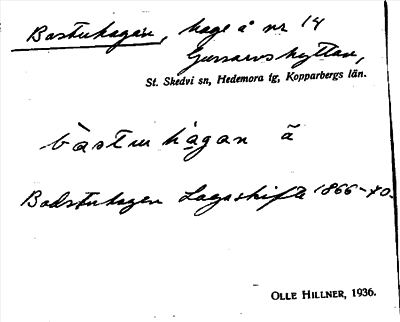 Bastuhagan, hage å nr 14
Gussarvshyttan,
St. Skedvi sn, Hedemora tg, Kopparbergs län.
bàstu hagan ã
Badstuhagen Lagaskifte 1866-70.
OLLE HILLNER, 1936.